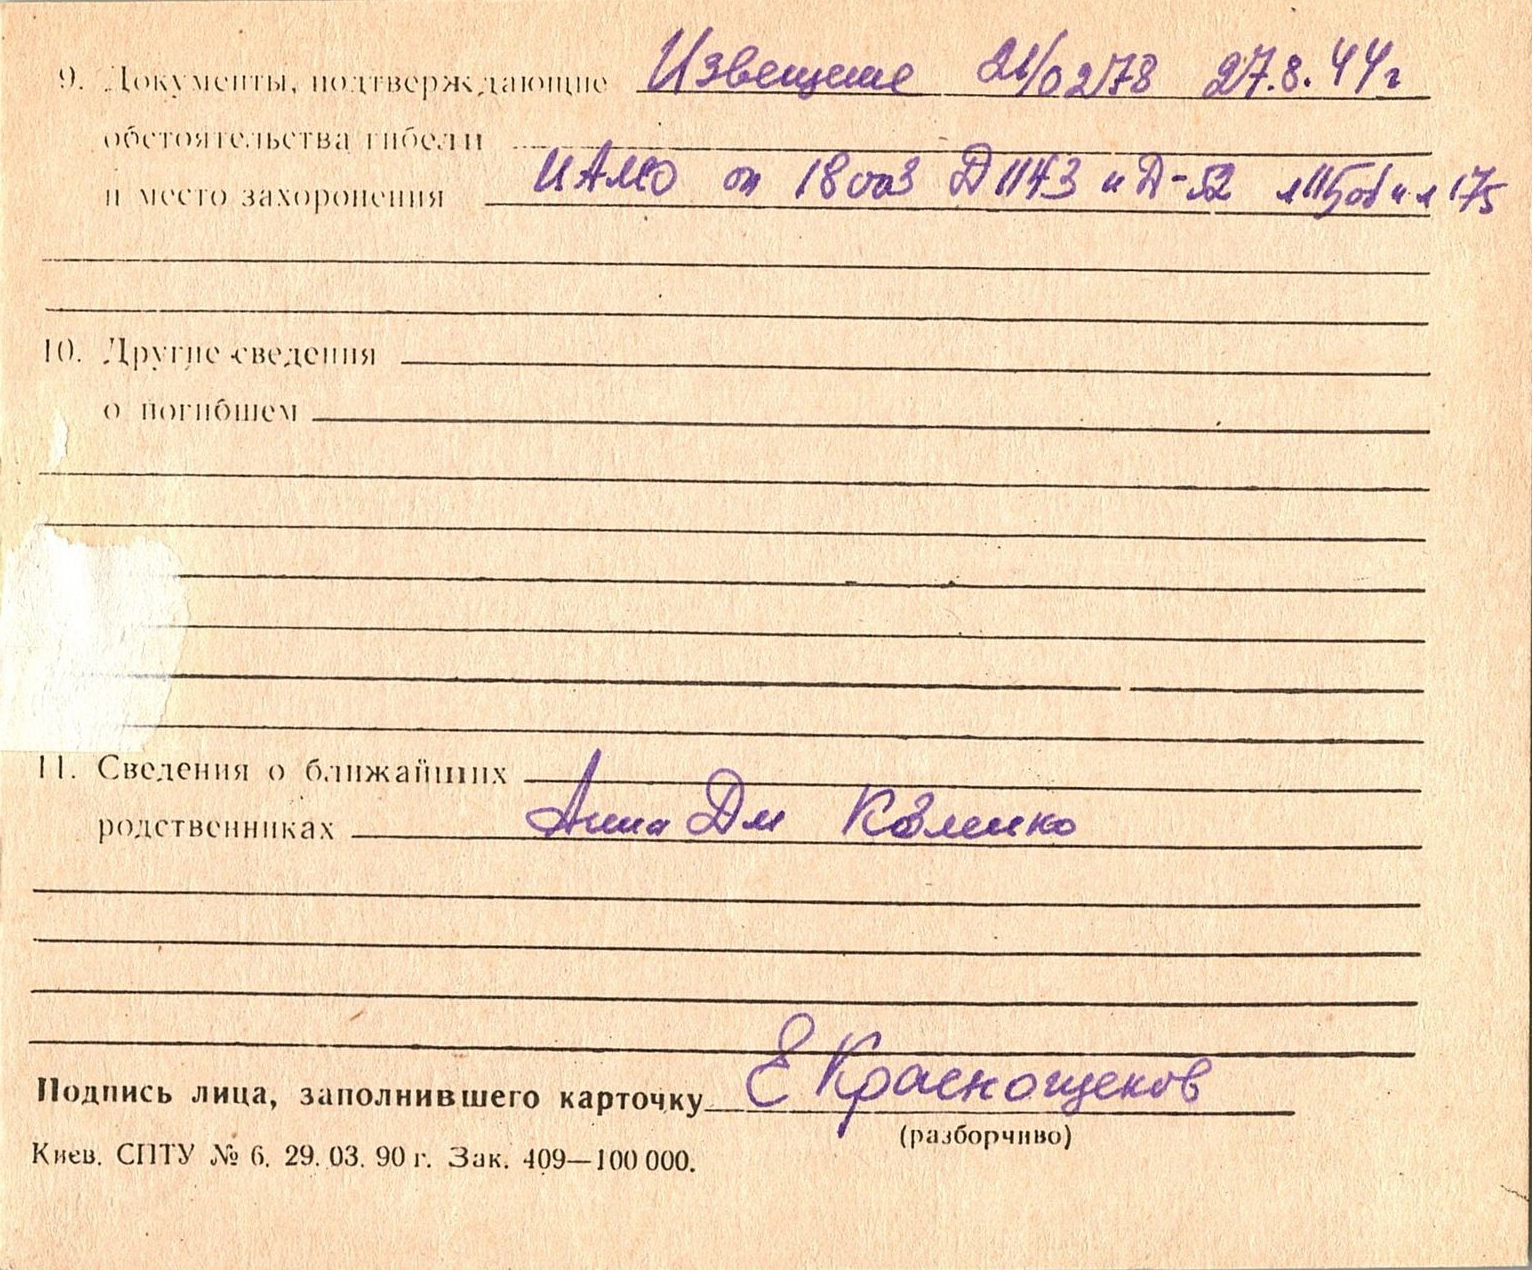 9. Документы, подтверждающие Извещение 21/0278 27.8.44г
обстоятельства гибели
и место захоронения ЦАМО оп 18003 Д 1143 и Д-52 л 115об и л 175
10. Другие сведения
о погибшем
11. Сведения о ближайших
родственниках Анна Дм
Подпись лица, заполнившего карточку Е Краснощеков
(разборчиво)
Киев. СПТУ № 6. 29. 03. 90 г. Зак. 409—100 000.